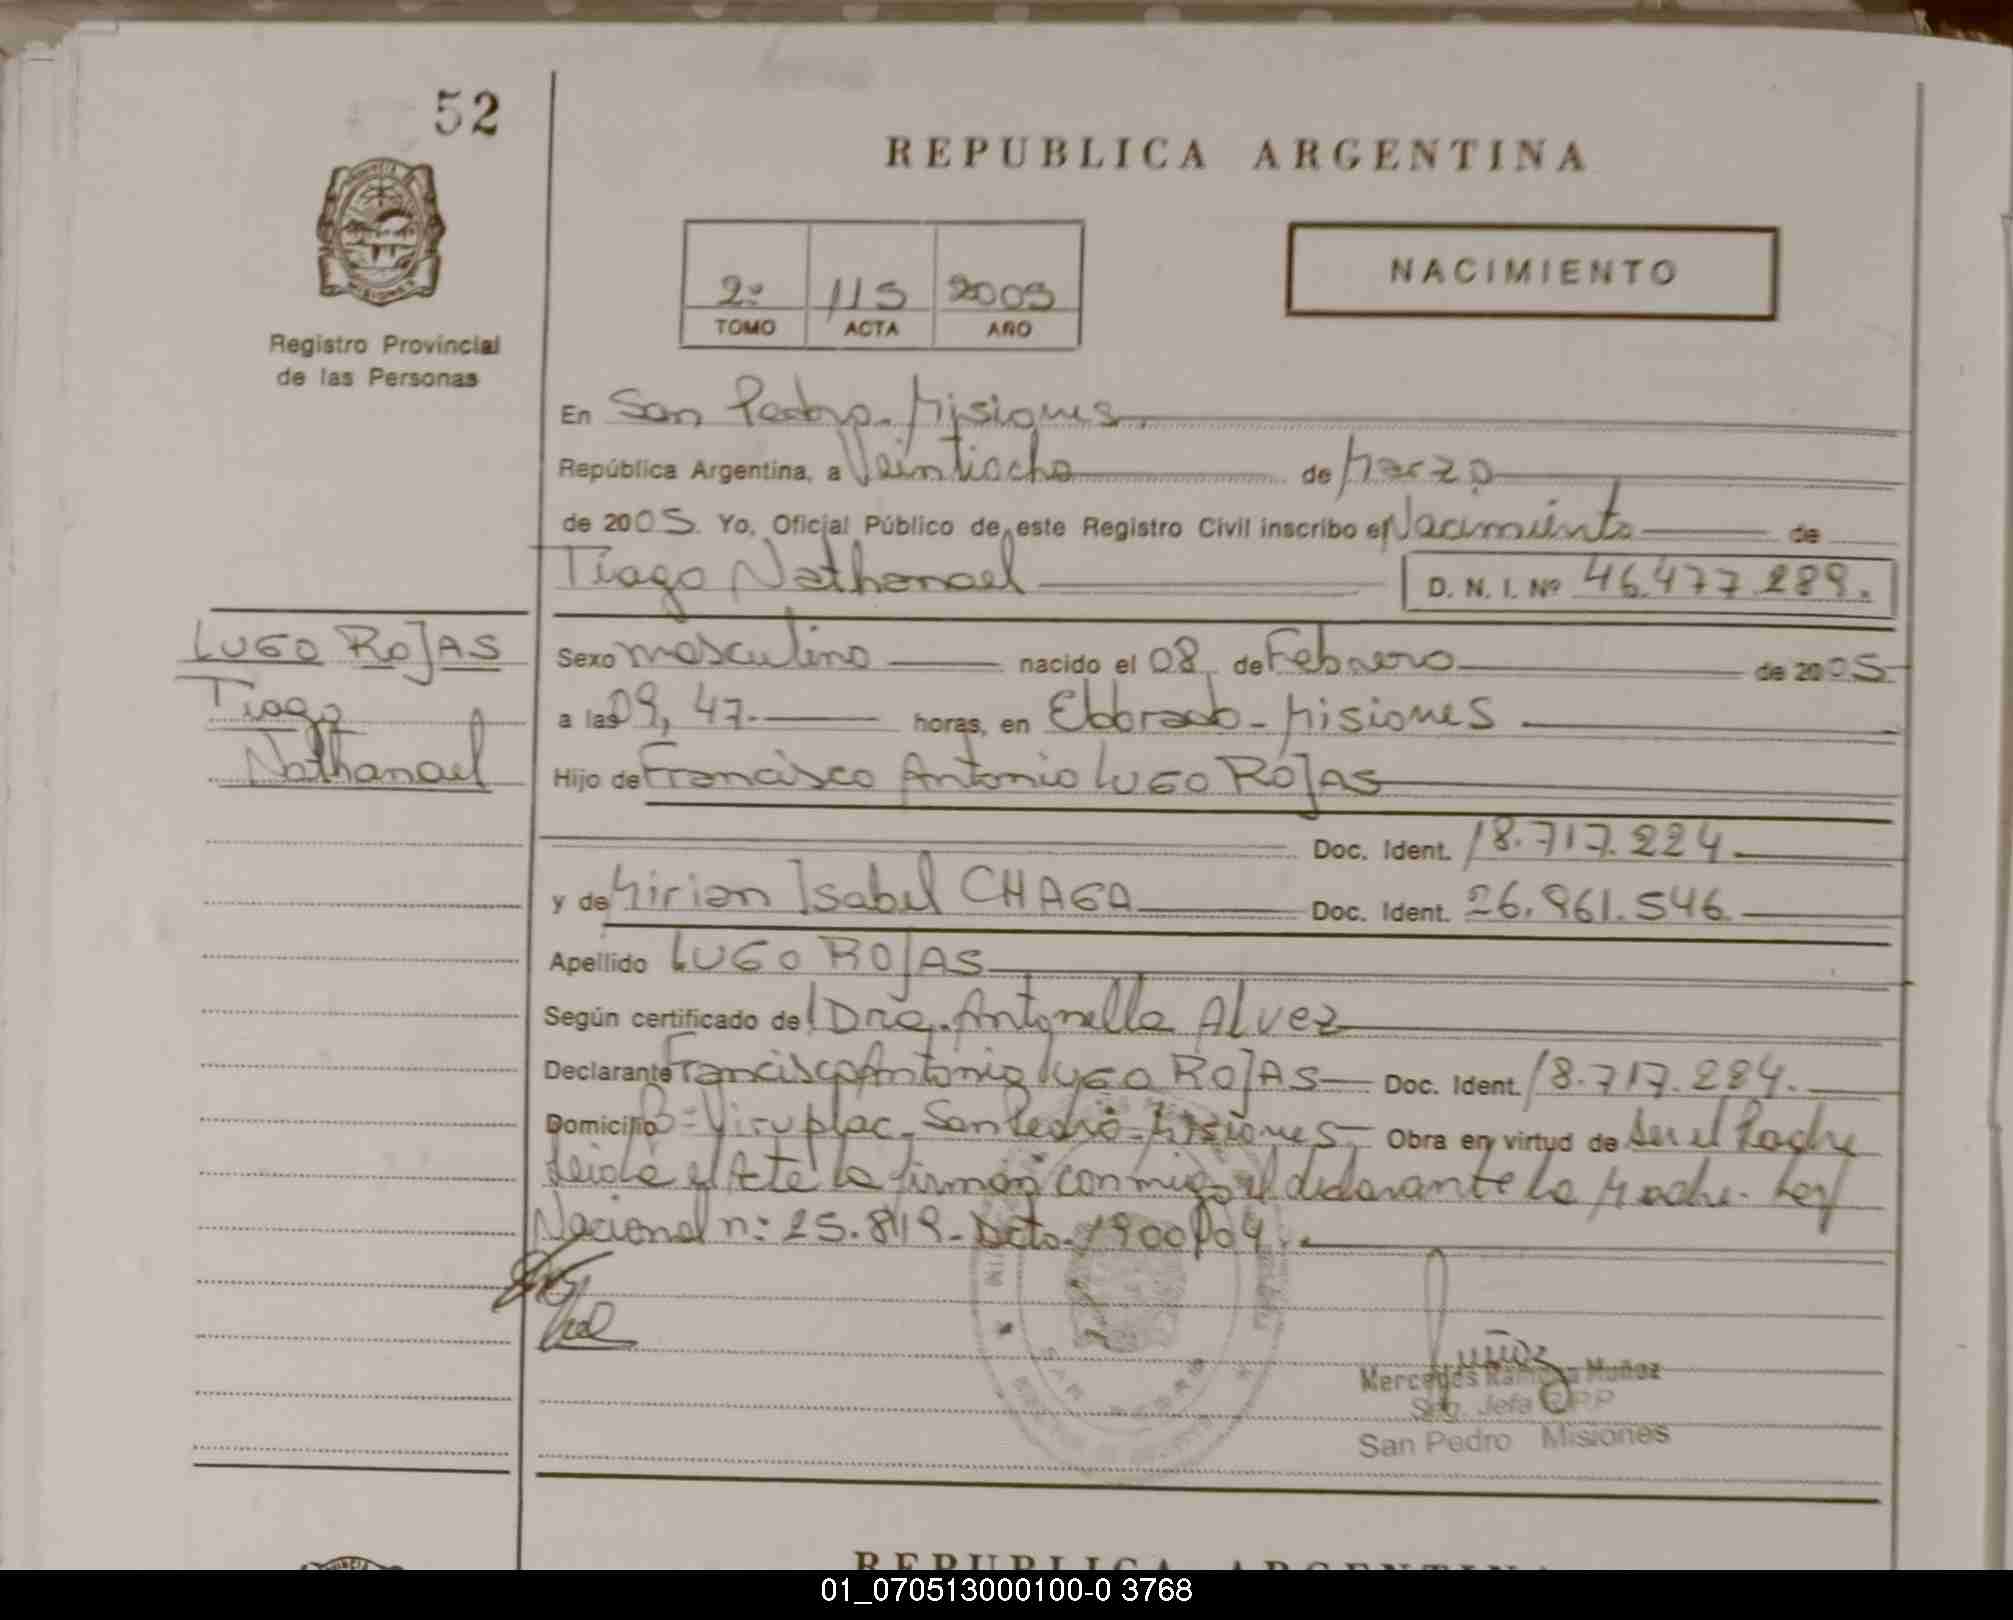 52
REPUBLICA ARGENTINA
NACIMIENTO
2º 115 2005
TOMO ACTA AÑO
Registro Provincial
de las Personas
En San Pedro - Misiones
República Argentina, a Veintiocho de Marzo
de 2005. Yo, Oficial Público de este Registro Civil inscribo el Nacimiento de
Tiago Nathanael D. N. I. Nº 46.477.289.
LUGO ROJAS
Tiago
Nathanael
Sexo masculino nacido el 08 de Febrero de 2005
a las 09,47. horas, en Eldorado - Misiones
Hijo de Francisco Antonio LUGO ROJAS
Doc. Ident. 18.717.224
y de Mirian Isabel CHAGA Doc. Ident. 26.961.546
Apellido LUGO ROJAS
Según certificado de Dra. Antonella Alvez
Declarante Francisco Antonio Lugo ROJAS Doc. Ident. 18.717.224.
Domicilio Bº Viruplac - San Pedro - Misiones Obra en virtud de ser el Padre
leida el Acta la firman conmigo el declarante la Madre. Ley
Nacional n: 25.819 - Dcto. 1900/04.
Muñoz
Mercedes Ramona Muñoz
Seg. Jefa RPP
San Pedro Misiones
SAN PEDRO
REPUBLICA ARGENTINA
01_070513000100-0 3768